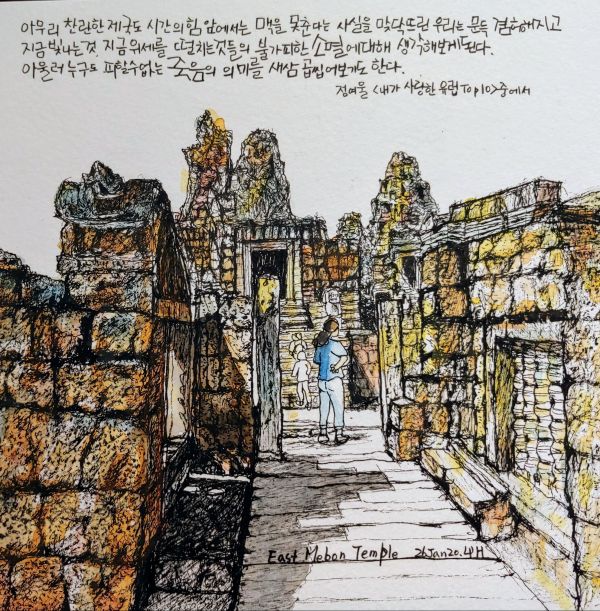 아무리 찬란한 제국도 시간의 힘 앞에서는 맥을 못춘다는 사실을 맞닥뜨린 우리는 문득 겸허해지고
지금 빛나는것 지금 위세를 떨치는것들의 불가피한 소멸에대해 생각해보게된다.
아울러 누구도 피할수없는 죽음의 의미를 새삼 곱씹어보게도 한다.
정여울 <내가 사랑한 유럽 Top10> 중에서
East Mebon Temple 26Jan20.